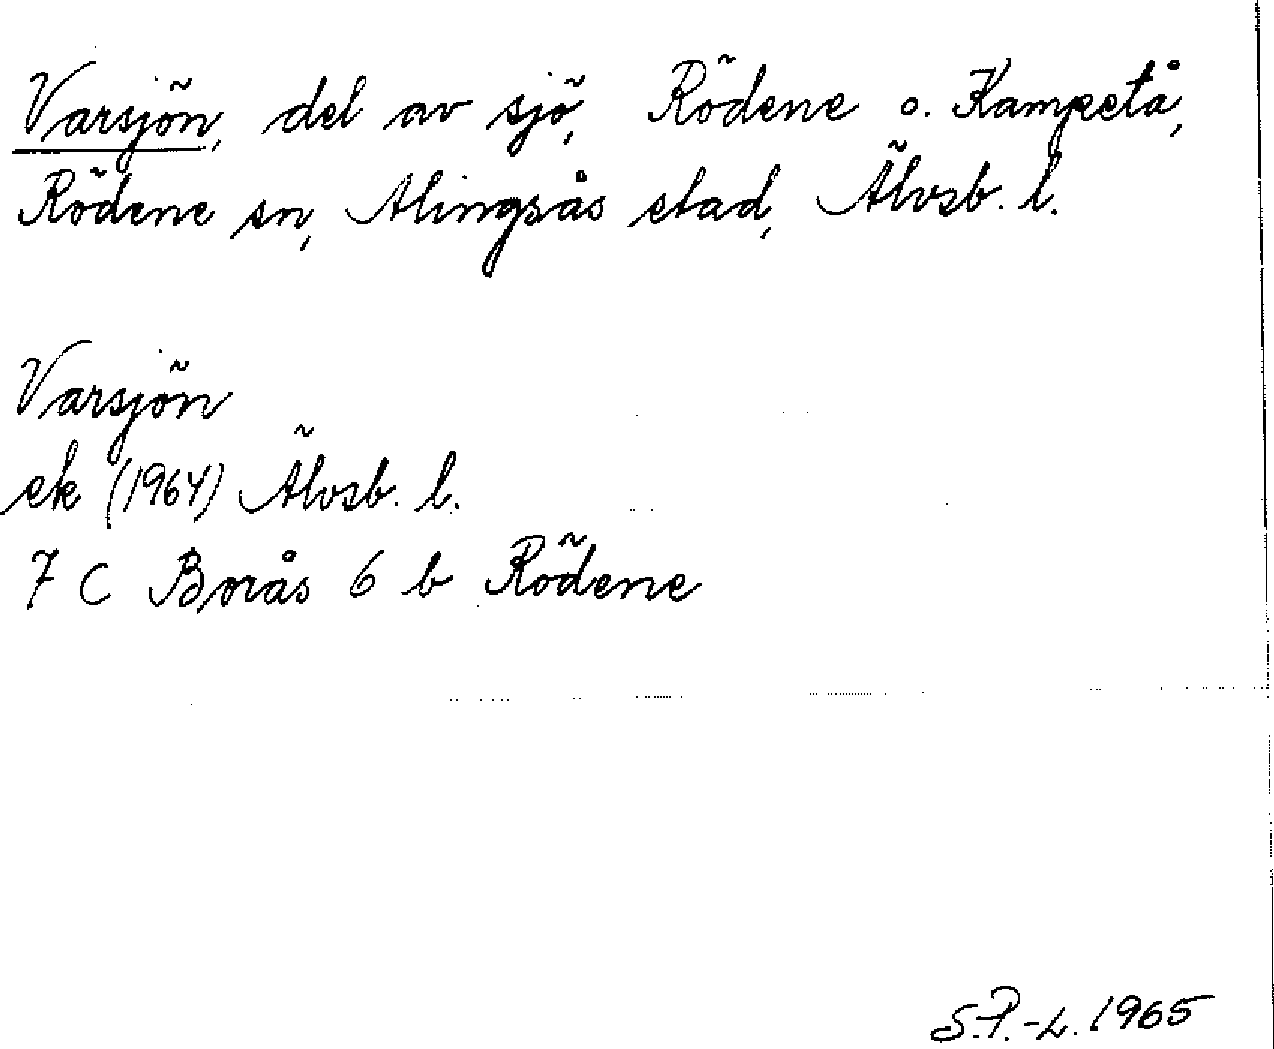 Varsjön, del av sjö, Rödene o. Kampetå,
Rödene sn, Alingsås stad, Älvsb. l.
Varsjön
ek (1964) Älvsb. l.
7 C Borås 6 b Rödene
S.P.-L. 1965